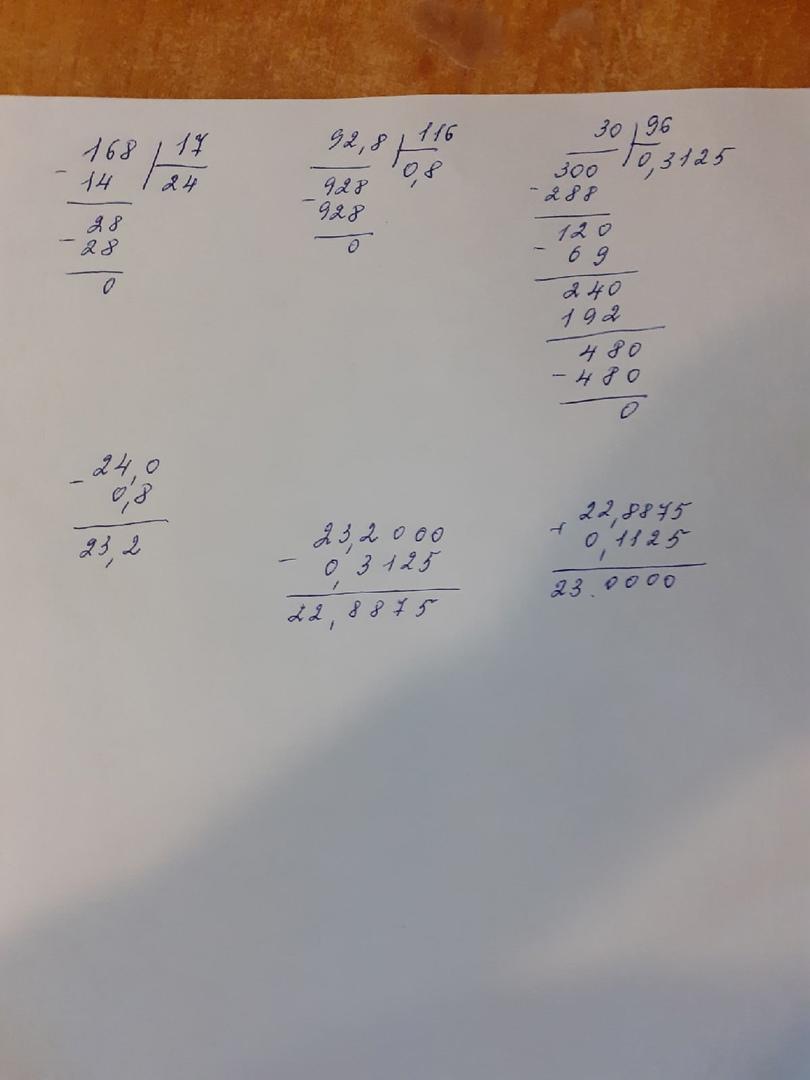 - 168 | 17
14 24
28
- 28
0
92,8 | 116
928 0,8
- 928
0
30 | 96
300 0,3125
- 288
120
- 69
240
192
480
- 480
0
- 24,0
0,8
23,2
23,2000
- 0,3125
22,8875
+ 22,8875
0,1125
23.0000